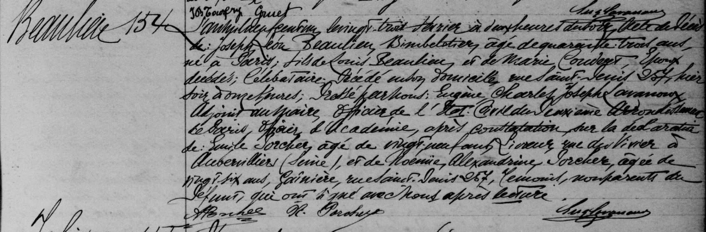 Beaulieu 154
L'an mil neuf cent un, le vingt-trois février à deux heures du soir, Acte de décès
de: Joseph Léon Beaulieu, Bimbelotier, âgé de quarante trois ans,
né à Paris; fils de Louis Beaulieu, et de Marie, époux
décédés; Célibataire. Décédé en son domicile rue Saint-Denis 257, hier
soir à onze heures; Dressé par Nous: Eugène Charles Joseph
Adjoint au Maire, Officier de l'État-Civil du deuxième Arrondissement
de Paris, Officier d'Académie, après constatation, sur la déclaration
de: Émile Porcher, âgé de vingt neuf ans, rue du Vivier à
Aubervilliers (Seine), et de Noémie, Alexandrine Porcher, âgée de
vingt six ans, Gaînière, rue Saint-Denis 257, témoins, non parents du
défunt, qui ont signé avec Nous après lecture.
N. Porcher